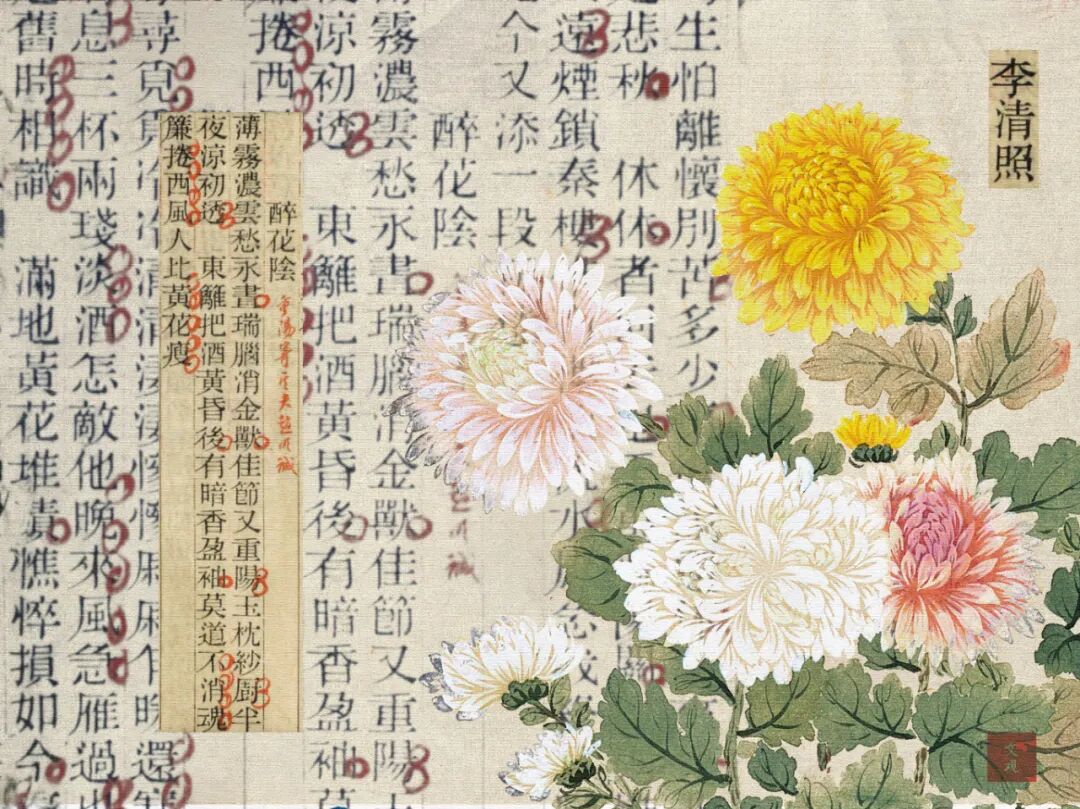 李清照
生怕離懷別苦多少
悲秋　休休者
遠煙鎖秦樓
今又添一段
醉花陰
霧濃雲愁永晝瑞腦消金獸佳節又重陽
涼初透　東籬把酒黃昏後有暗香盈袖
捲西
醉花陰
薄霧濃雲愁永晝瑞腦消金獸佳節又重陽玉枕紗厨半
夜涼初透　東籬把酒黃昏後有暗香盈袖莫道不消魂
簾捲西風人比黃花瘦
尋覓覓冷冷清清淒淒慘慘戚戚乍暖還
息三杯兩琖淡酒怎敵他晚來風急雁過也
舊時相識　滿地黃花堆積憔悴損如今